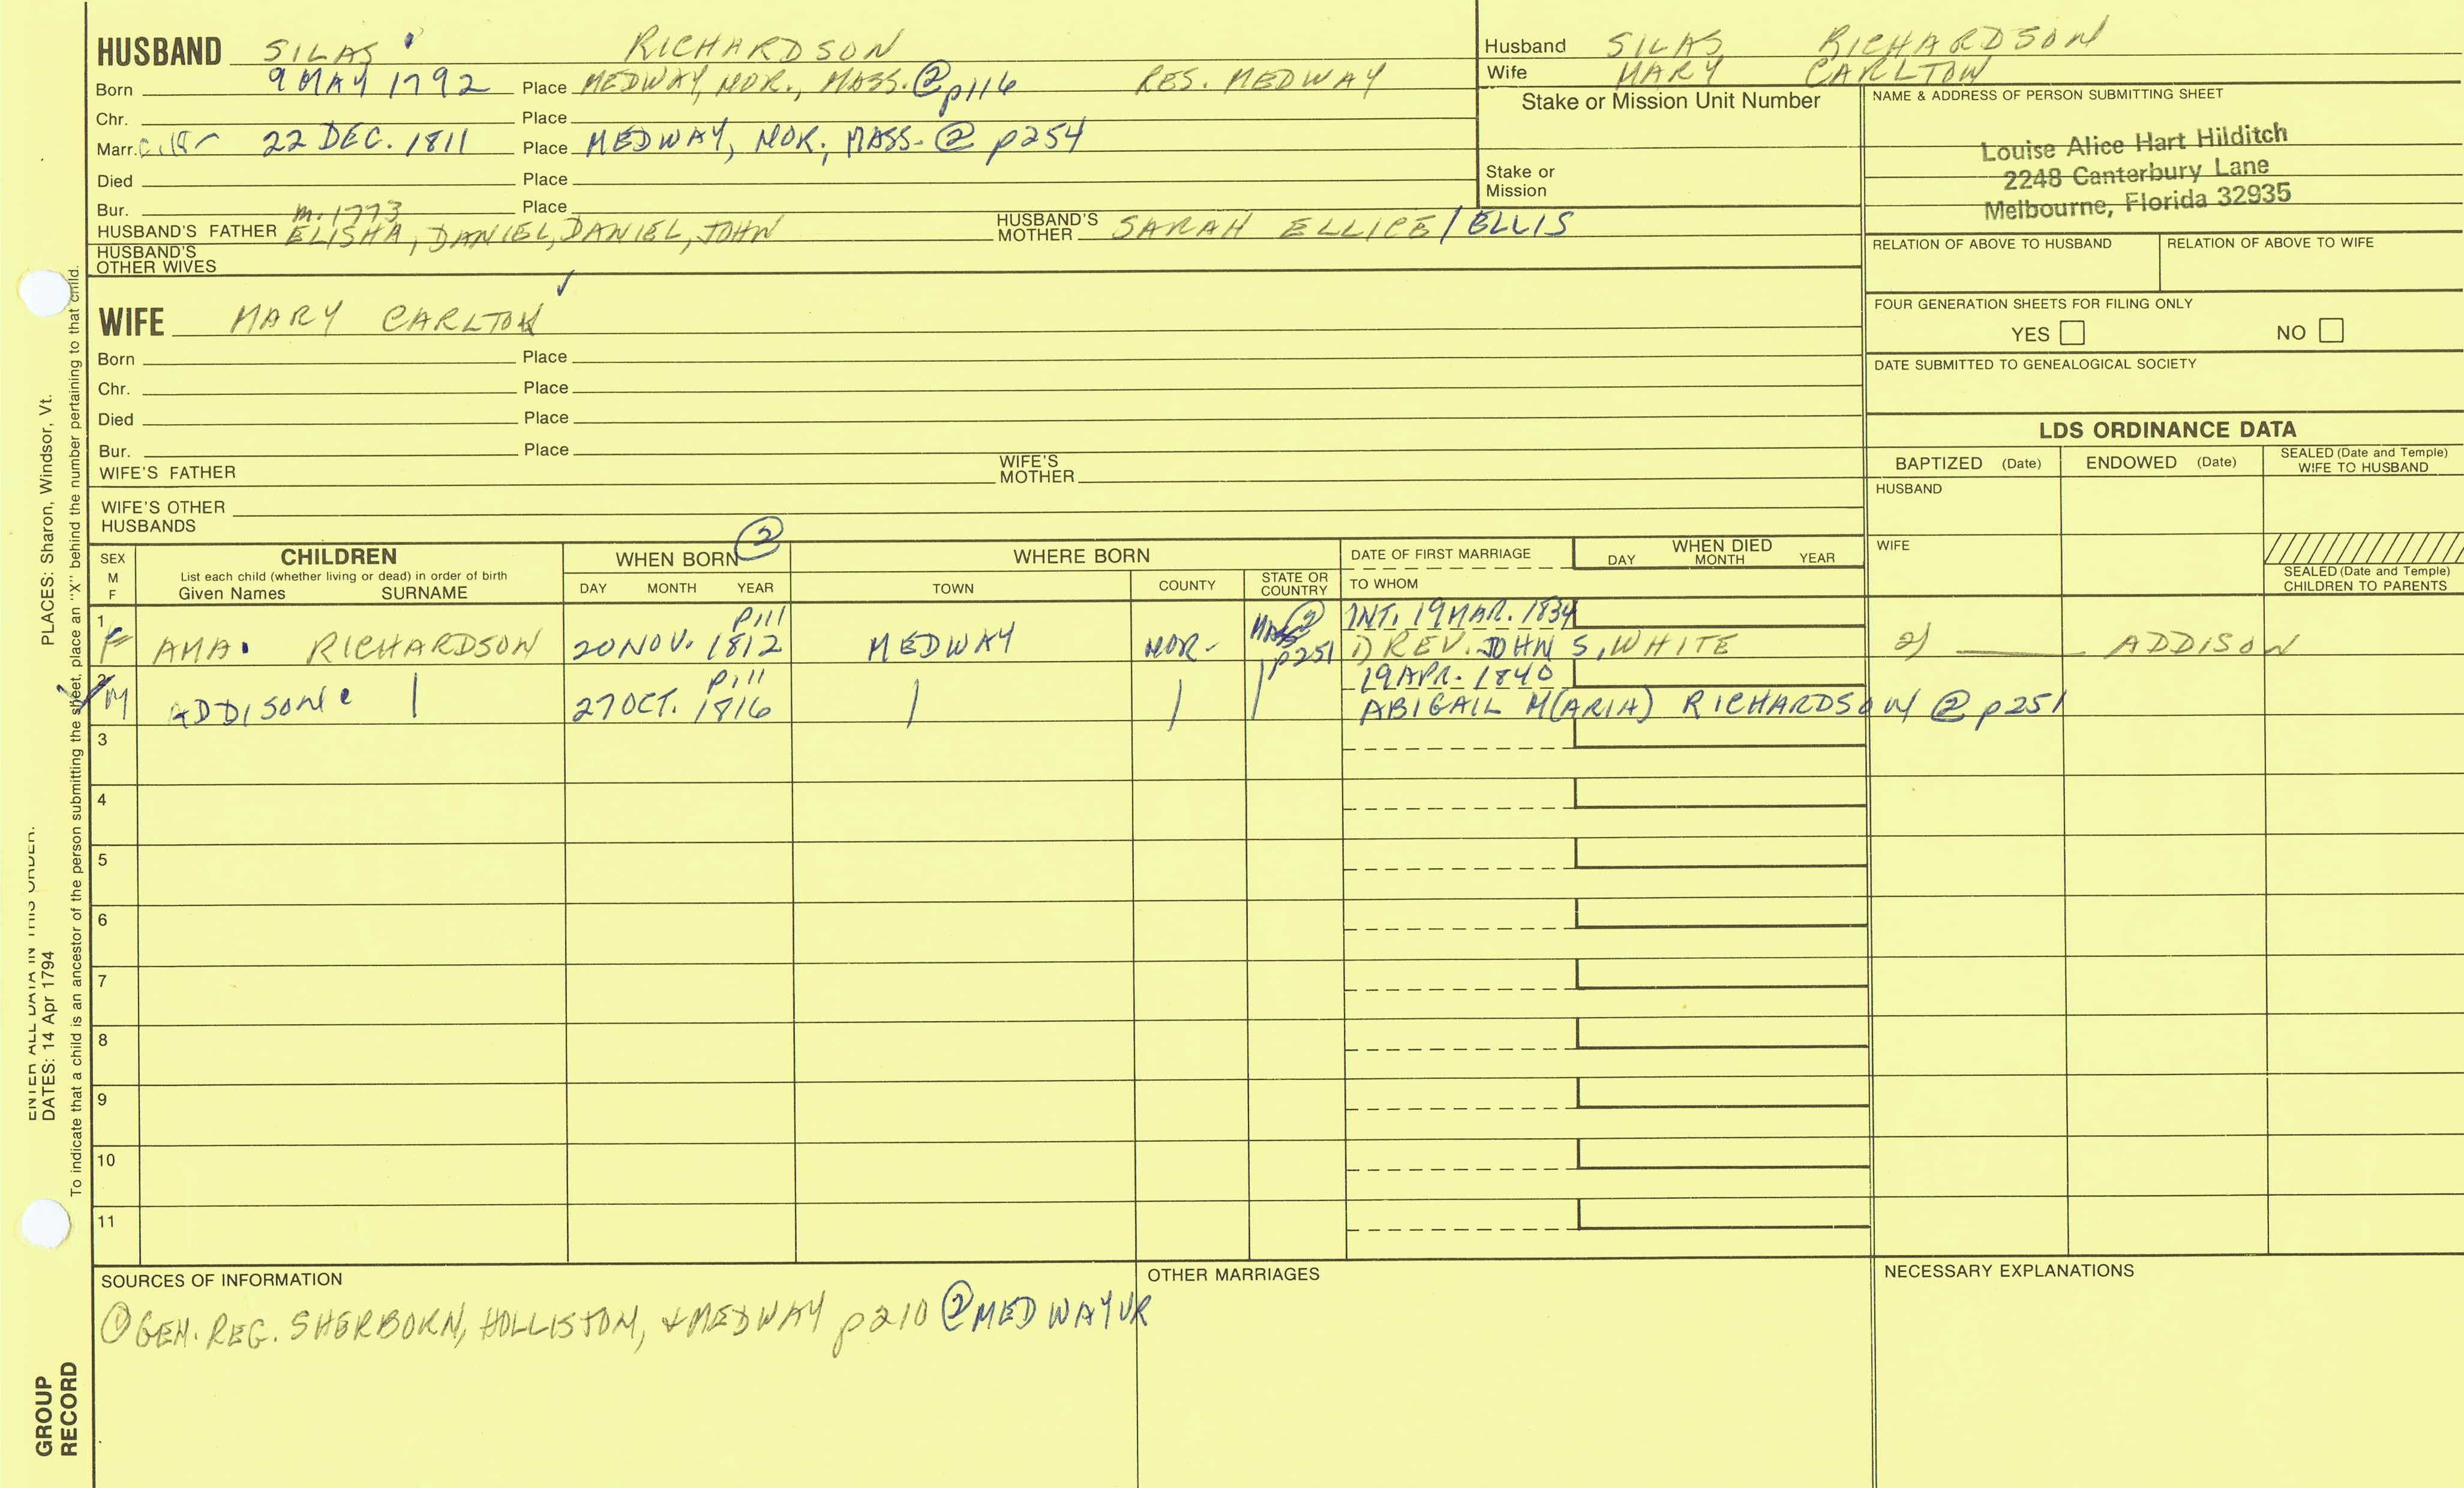 HUSBAND SILAS RICHARDSON
Born 9 MAY 1792 Place MEDWAY, NOR., MASS. ② p116 RES. MEDWAY
Chr. Place
Marr. 22 DEC. 1811 Place MEDWAY, NOR., MASS. ② p254
Died Place
Bur. Place
m. 1773
HUSBAND'S FATHER ELISHA, DANIEL, DANIEL, JOHN HUSBAND'S MOTHER SARAH ELLICE/ELLIS
HUSBAND'S OTHER WIVES
Husband SILAS RICHARDSON
Wife MARY CARLTON
Stake or Mission Unit Number
Stake or
Mission
NAME & ADDRESS OF PERSON SUBMITTING SHEET
Louise Alice Hart Hilditch
2248 Canterbury Lane
Melbourne, Florida 32935
RELATION OF ABOVE TO HUSBAND RELATION OF ABOVE TO WIFE
FOUR GENERATION SHEETS FOR FILING ONLY
YES NO
DATE SUBMITTED TO GENEALOGICAL SOCIETY
WIFE MARY CARLTON
Born Place
Chr. Place
Died Place
Bur. Place
WIFE'S FATHER WIFE'S MOTHER
WIFE'S OTHER
HUSBANDS
LDS ORDINANCE DATA
BAPTIZED (Date) ENDOWED (Date) SEALED (Date and Temple) WIFE TO HUSBAND
HUSBAND
WIFE
SEALED (Date and Temple)
CHILDREN TO PARENTS
SEX
M
F
CHILDREN
List each child (whether living or dead) in order of birth
Given Names SURNAME
WHEN BORN ②
DAY MONTH YEAR
WHERE BORN
TOWN COUNTY STATE OR COUNTRY
DATE OF FIRST MARRIAGE
TO WHOM
WHEN DIED
DAY MONTH YEAR
1 p111 ② INT. 19 MAR. 1834
F AMA RICHARDSON 20 NOV. 1812 MEDWAY NOR. MASS p251 1) REV. JOHN S. WHITE 2) ____ ADDISON
2 p111 19 APR. 1840
M ADDISON | 27 OCT. 1816 | | | ABIGAIL M(ARIA) RICHARDSON ② p251
3
4
5
6
7
8
9
10
11
SOURCES OF INFORMATION
① GEN. REG. SHERBORN, HOLLISTON, & MEDWAY p210 ② MEDWAY VR
OTHER MARRIAGES
NECESSARY EXPLANATIONS
PLACES: Sharon, Windsor, Vt.
ENTER ALL DATA IN THIS ORDER:
DATES: 14 Apr 1794
To indicate that a child is an ancestor of the person submitting the sheet, place an "X" behind the number pertaining to that child.
GROUP
RECORD